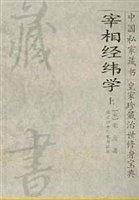 中国私家藏书 皇家珍藏治世修身宝典
宰相经纬学
上
藏书